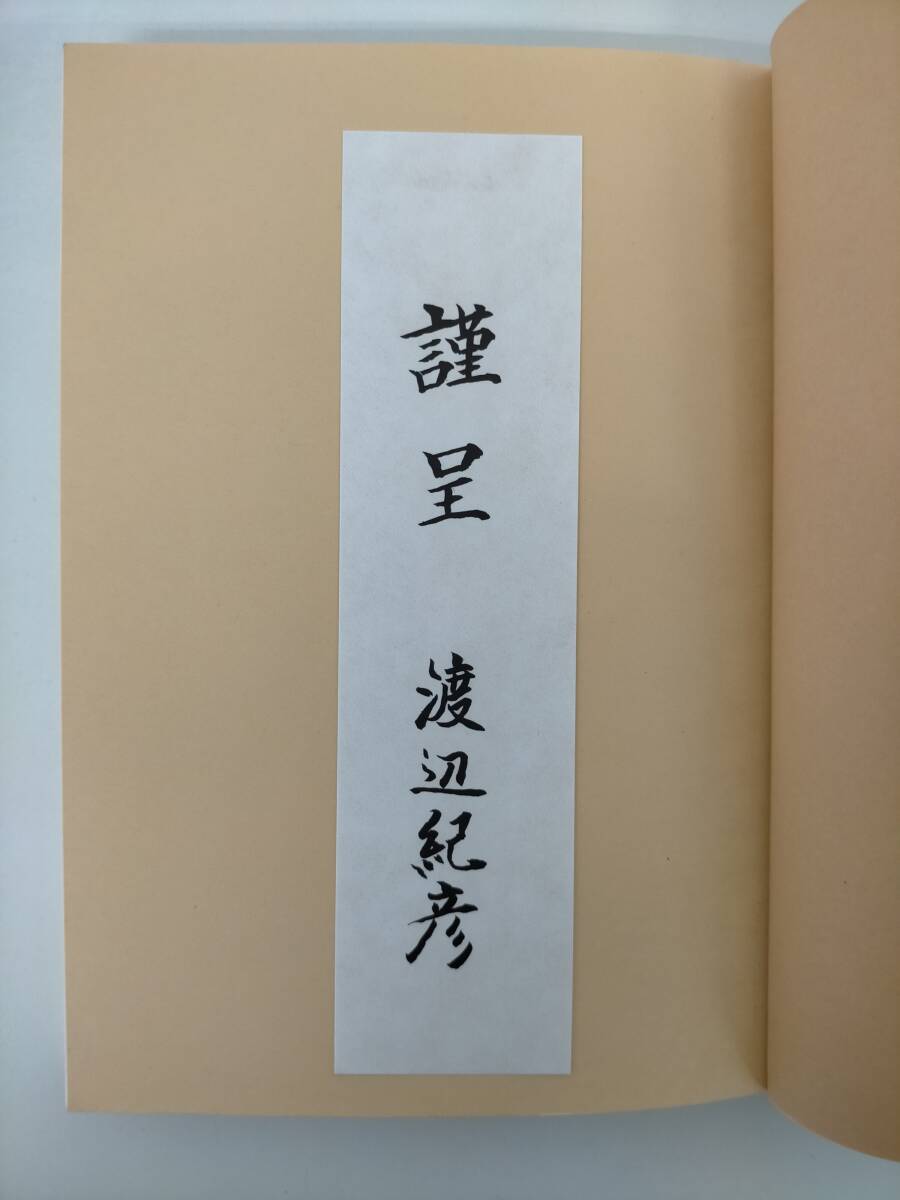 謹呈
渡辺紀彦